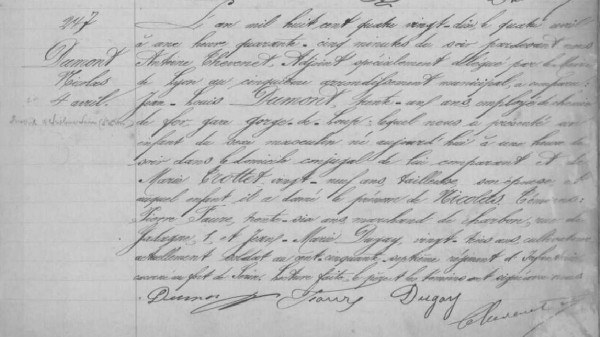 247
Dumont
Nicolas
4 avril
L'an mil huit cent quatre vingt-dix, le quatre avril
à une heure quarante-cinq minutes du soir pardevant nous
Antoine Chevenet, Adjoint spécialement délégué par le Maire
de Lyon au cinquième arrondissement municipal, a comparu:
Jean-Louis Dumont, trente-un ans, employé de chemin
de fer, gare gorge-de-loup; lequel nous a présenté un
enfant du sexe masculin né aujourd'hui à une heure du
soir dans le domicile conjugal de lui comparant et de
Marie Trottet, vingt-neuf ans, tailleuse, son épouse et
auquel enfant, il a donné le prénom de Nicolas. Témoins:
Faure, trente-six ans, marchand de charbon, rue de
1, et Jean-Marie Dugay, vingt-trois ans, cultivateur
actuellement soldat au cent-cinquante-septième régiment d'infanterie
au fort de Lecture faite, le père et les témoins ont signé avec nous
Dumont Faure Dugay
Chevenet